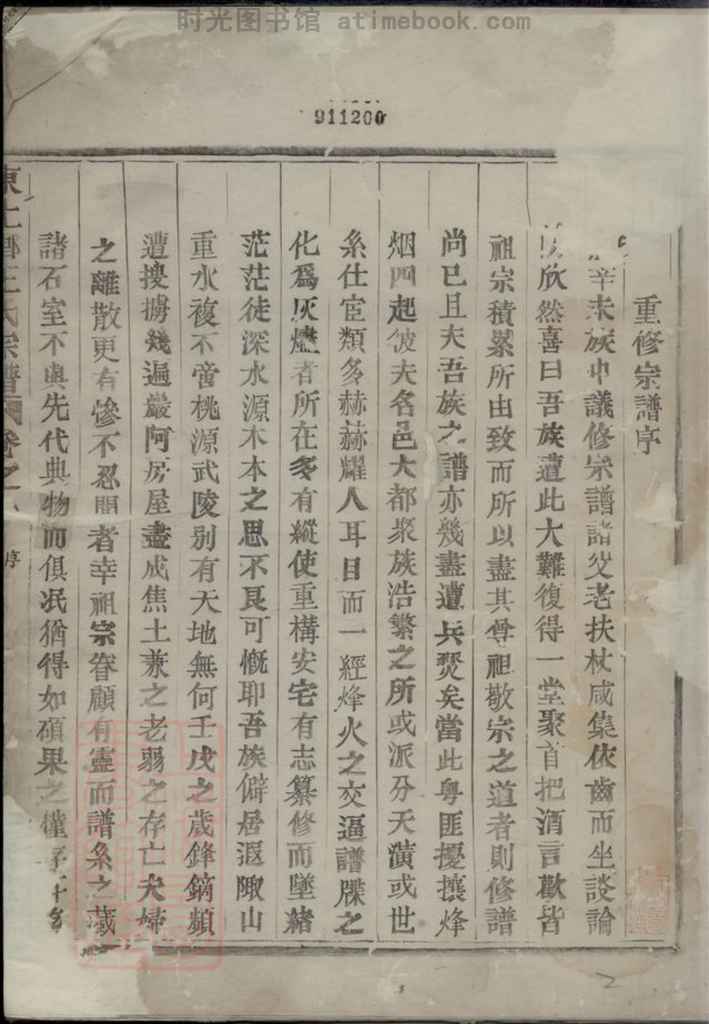 时光图书馆 atimebook.com
911200
重修宗譜序
辛未族中議修宗譜諸父老扶杖咸集依齒而坐談論
欣然喜曰吾族遭此大難復得一堂聚首把酒言歡皆
祖宗積累所由致而所以盡其尊祖敬宗之道者則修譜
尚已且夫吾族之譜亦幾盡遭兵燹矣當此粵匪擾攘烽
烟四起彼夫名邑大都聚族浩繁之所或派分天潢或世
系仕宦類多赫赫耀人耳目而一經烽火之交逼譜牒之
化爲灰燼者所在多有縱使重構安宅有志纂修而墜緒
茫茫徒深水源木本之思不良可慨耶吾族僻居遐陬山
重水複不啻桃源武陵别有天地無何壬戌之歲鋒鏑頻
遭搜擄幾遍巖阿房屋盡成焦土兼之老弱之存亡夫婦
之離散更有慘不忍聞者幸祖宗眷顧有靈而譜系之藏
諸石室不與先代典物而俱泯猶得如碩果之僅存
東上鄉王氏宗譜 卷之 序